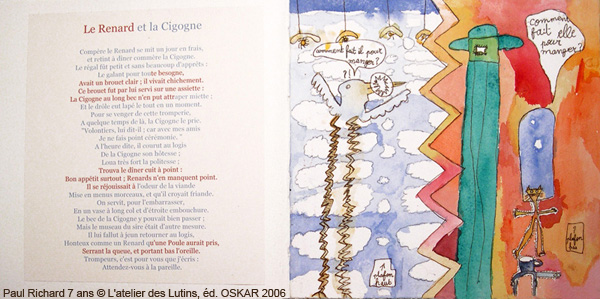 Le Renard et la Cigogne
Compère le Renard se mit un jour en frais,
et retint à dîner commère la Cigogne.
Le régal fût petit et sans beaucoup d'apprêts :
Le galant pour toute besogne,
Avait un brouet clair ; il vivait chichement.
Ce brouet fut par lui servi sur une assiette :
La Cigogne au long bec n'en put attraper miette ;
Et le drôle eut lapé le tout en un moment.
Pour se venger de cette tromperie,
A quelque temps de là, la Cigogne le prie.
"Volontiers, lui dit-il ; car avec mes amis
Je ne fais point cérémonie. "
A l'heure dite, il courut au logis
De la Cigogne son hôtesse ;
Loua très fort la politesse ;
Trouva le dîner cuit à point :
Bon appétit surtout ; Renards n'en manquent point.
Il se réjouissait à l'odeur de la viande
Mise en menus morceaux, et qu'il croyait friande.
On servit, pour l'embarrasser,
En un vase à long col et d'étroite embouchure.
Le bec de la Cigogne y pouvait bien passer ;
Mais le museau du sire était d'autre mesure.
Il lui fallut à jeun retourner au logis,
Honteux comme un Renard qu'une Poule aurait pris,
Serrant la queue, et portant bas l'oreille.
Trompeurs, c'est pour vous que j'écris :
Attendez-vous à la pareille.
comment fait il pour
manger?
Comment
fait elle
pour
manger?
Paul Richard 7 ans © L'atelier des Lutins, éd. OSKAR 2006